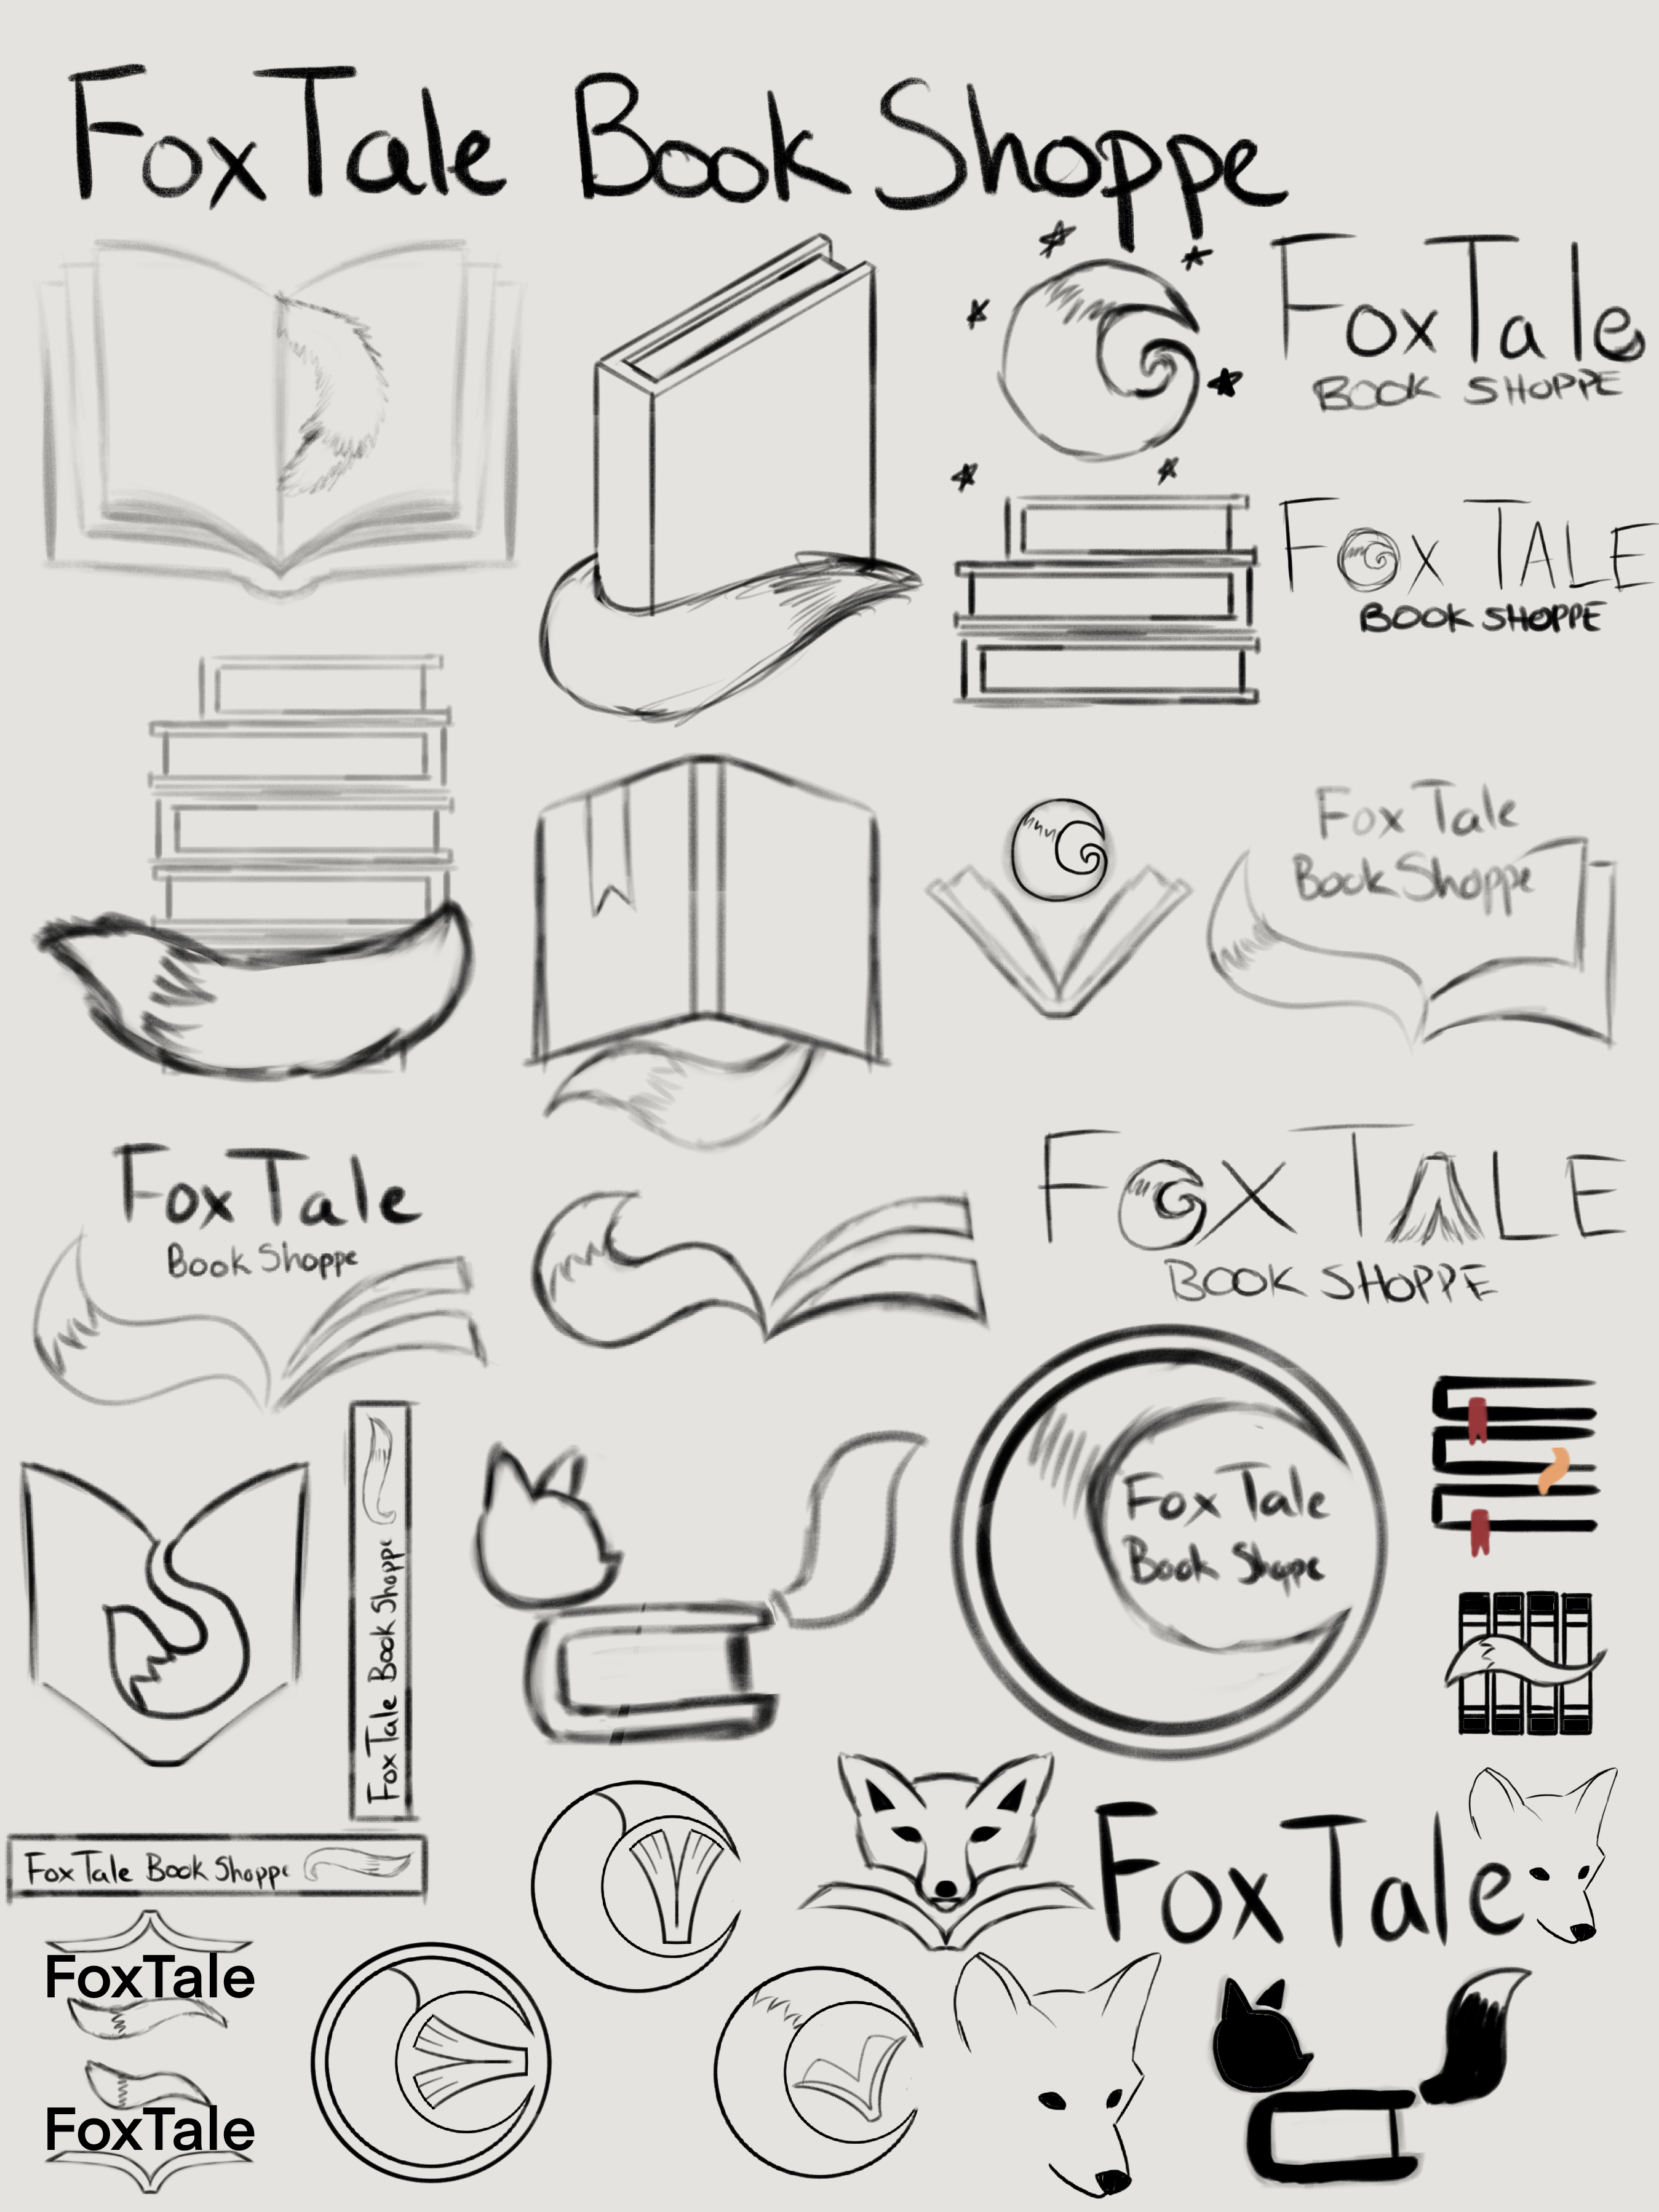 FoxTale Book Shoppe
FoxTale
BOOK SHOPPE
FOX TALE
BOOK SHOPPE
Fox Tale
Book Shoppe
FoxTale
Book Shoppe
FOX TALE
BOOK SHOPPE
Fox Tale
Book Shope
FoxTale Book Shoppe
FoxTale Book Shoppe
FoxTale
FoxTale
FoxTale